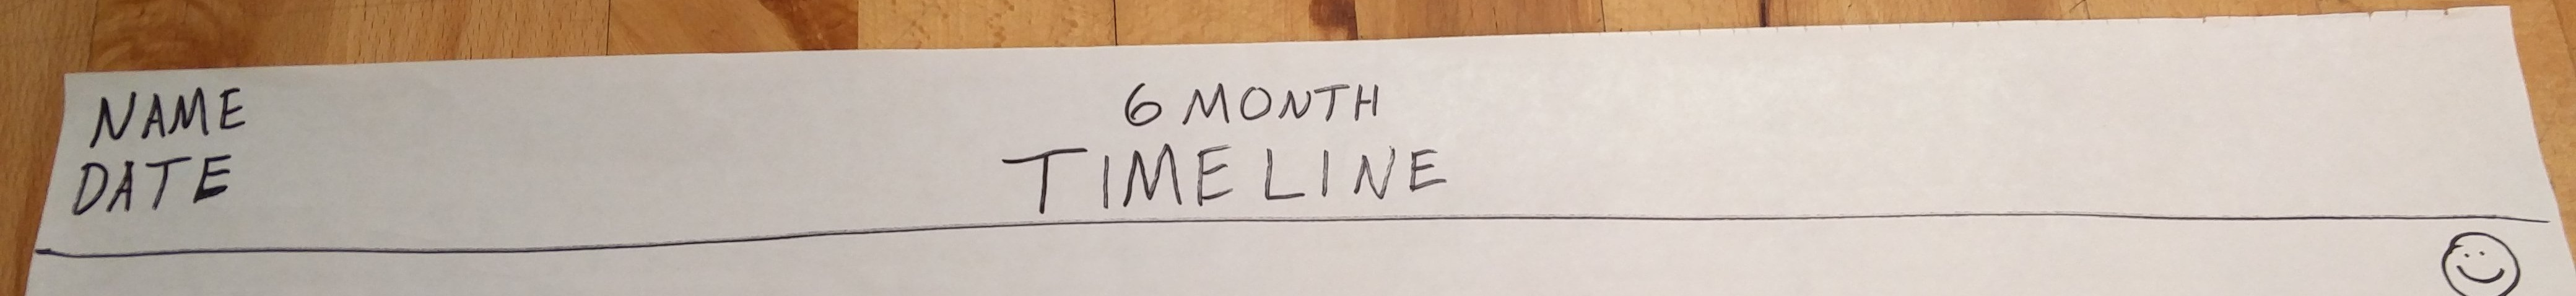 NAME
DATE
6 MONTH
TIMELINE